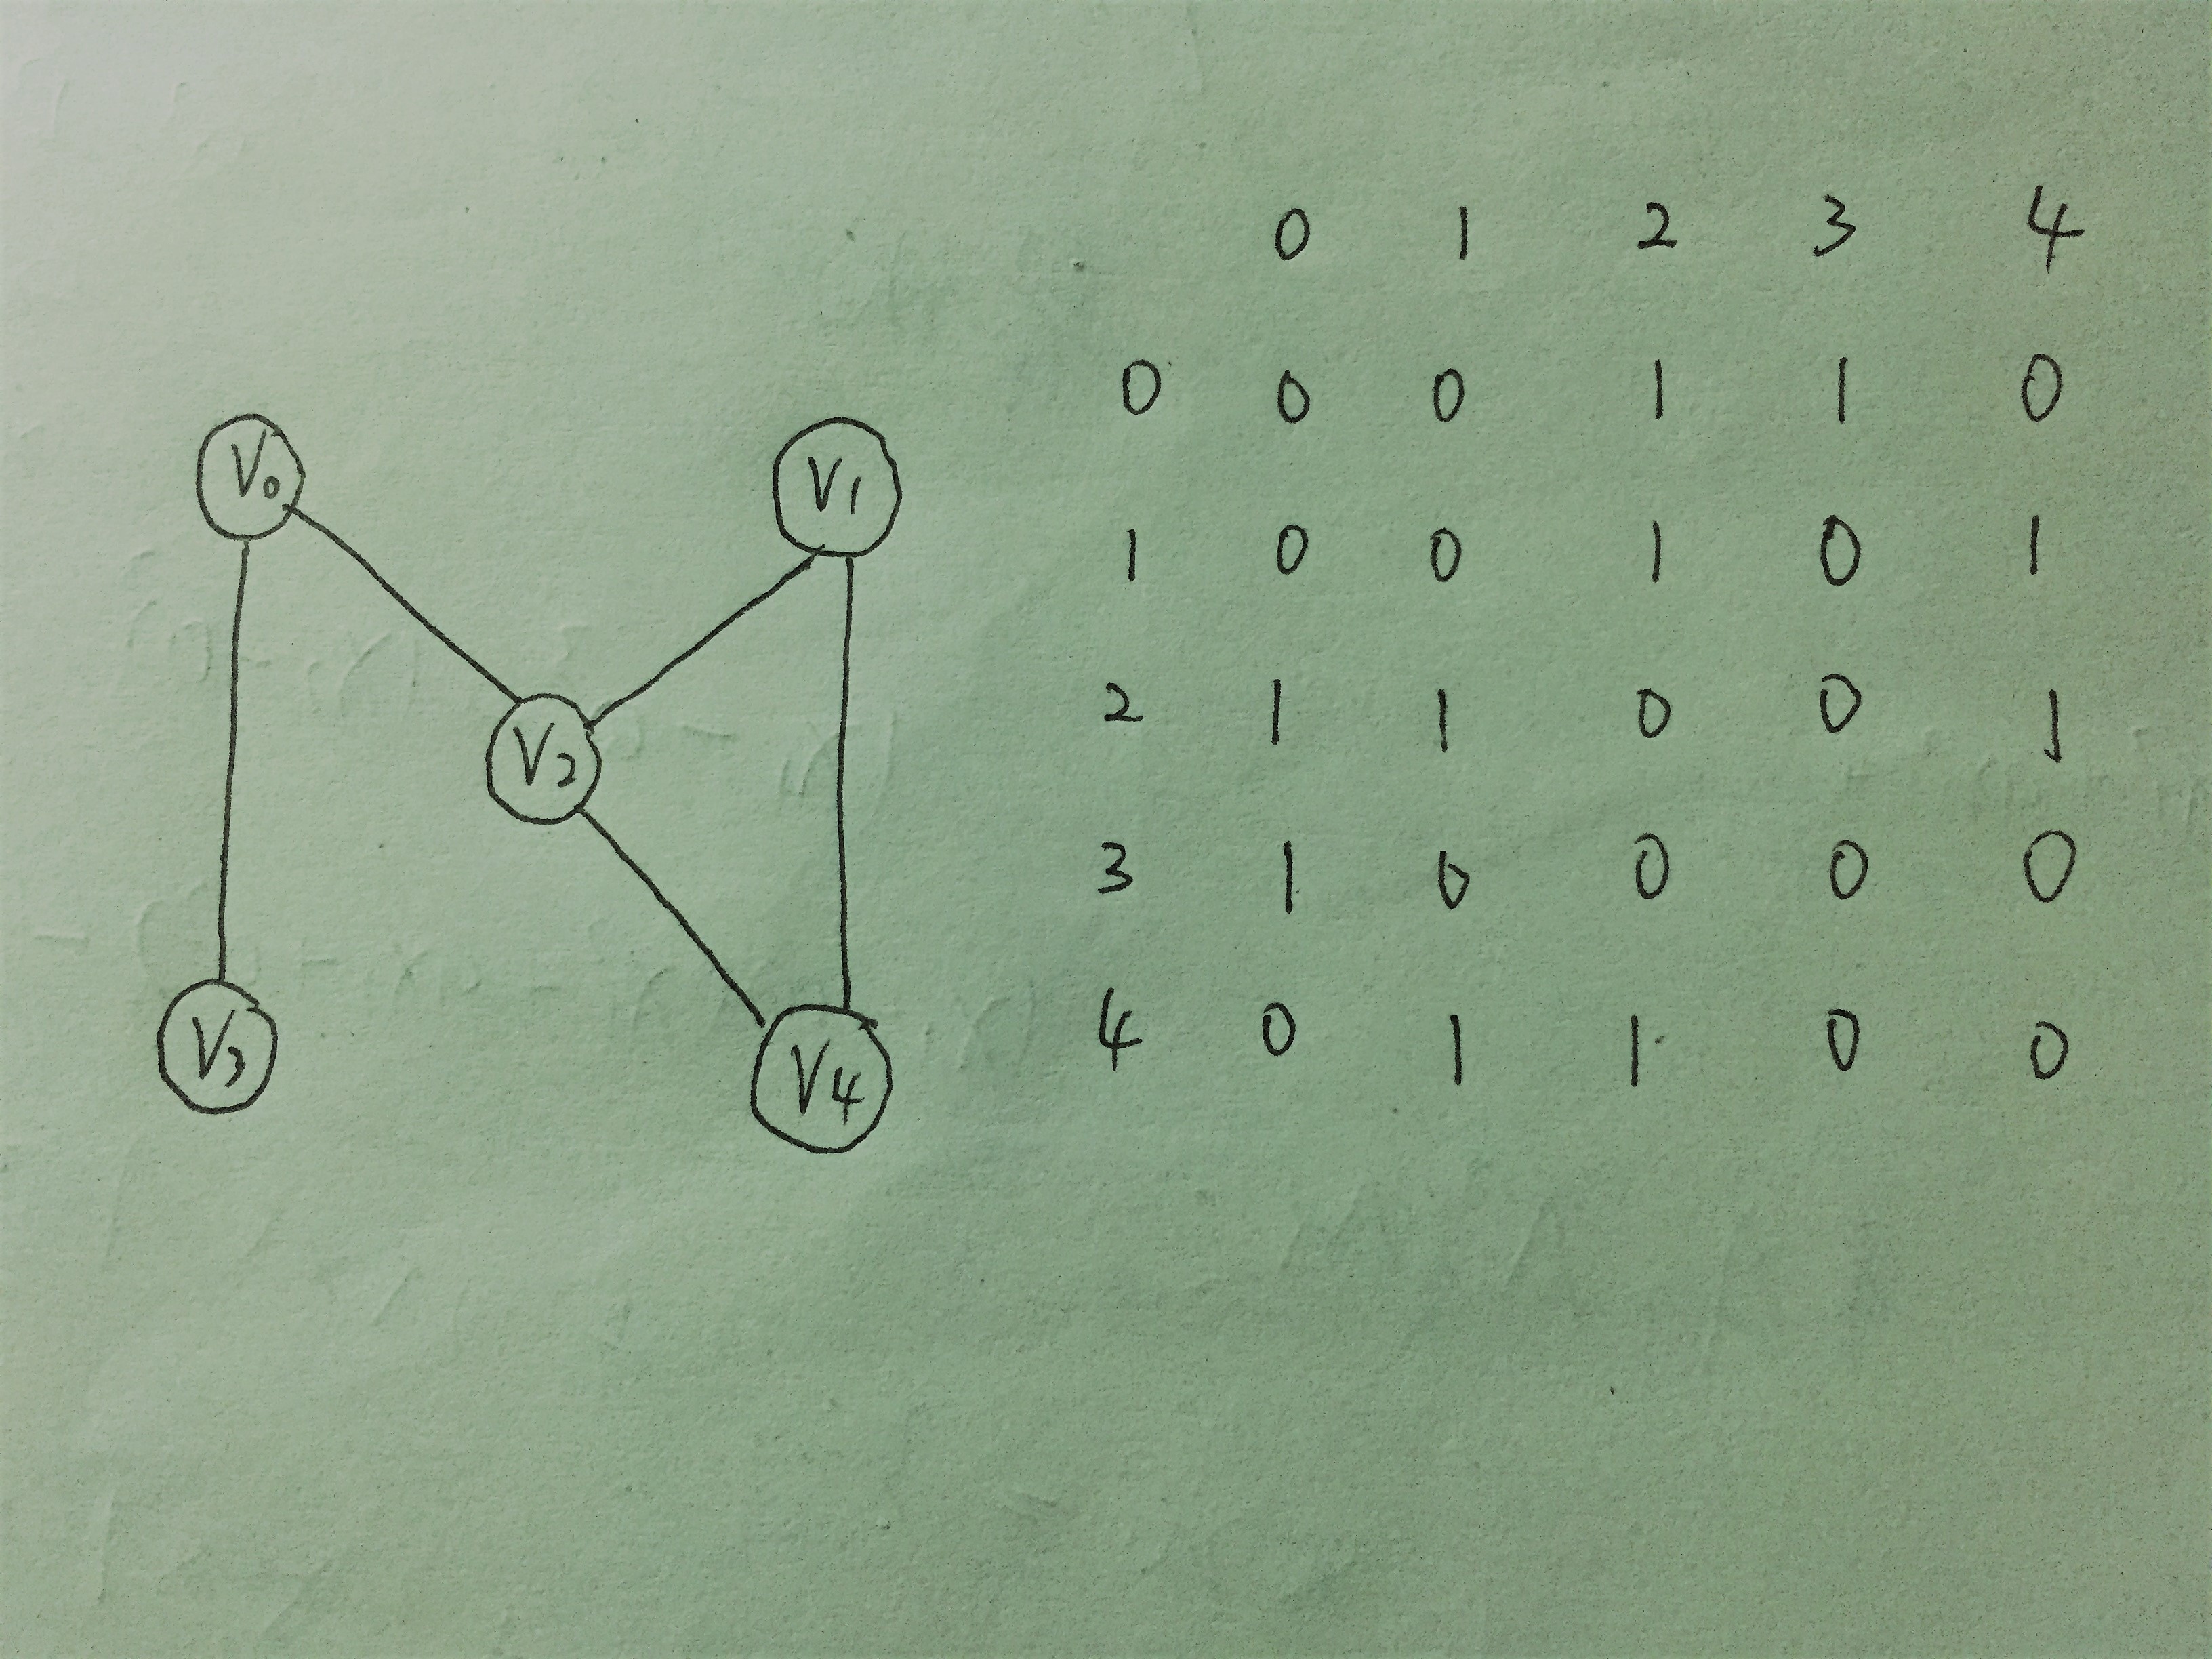 V0 V1
V2
V3 V4
0 1 2 3 4
0 0 0 1 1 0
1 0 0 1 0 1
2 1 1 0 0 1
3 1 0 0 0 0
4 0 1 1 0 0